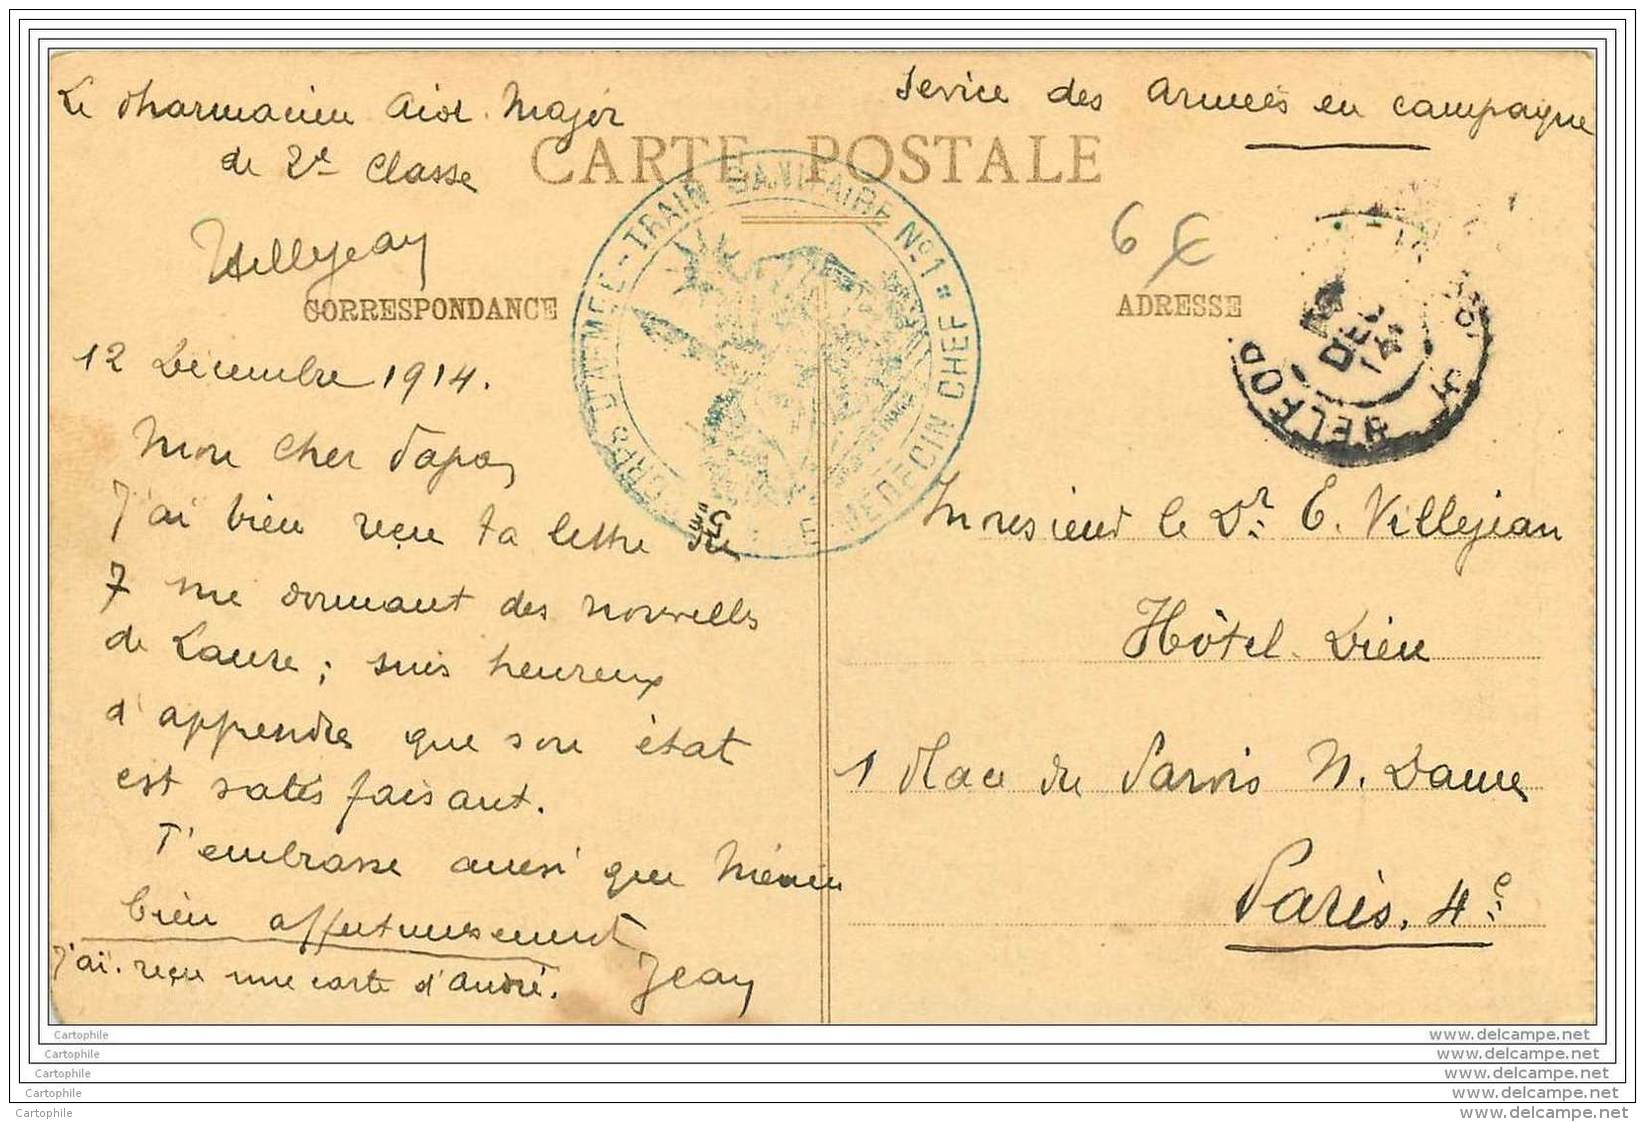 Le Pharmacien Aide Major
de 2e Classe
Villejean
Service des Armées en campagne
CARTE POSTALE
CORPS D'ARMEE - TRAIN SANITAIRE No 1 * LE MEDECIN CHEF
6 €
CORRESPONDANCE
ADRESSE
BELFORT
DEC
14
12 Décembre 1914.
Mon cher Papa,
J'ai bien reçu ta lettre du
7 me donnant des nouvelles
de Laure ; suis heureux
d'apprendre que son état
est satisfaisant.
T'embrasse ainsi que
bien affectueusement
Jean
J'ai reçu une carte d'André.
Monsieur le Dr E. Villejean
Hôtel-Dieu
1 Place du Parvis N. Dame
Paris. 4e
Cartophile
Cartophile
Cartophile
Cartophile
Cartophile
www.delcampe.net
www.delcampe.net
www.delcampe.net
www.delcampe.net
www.delcampe.net